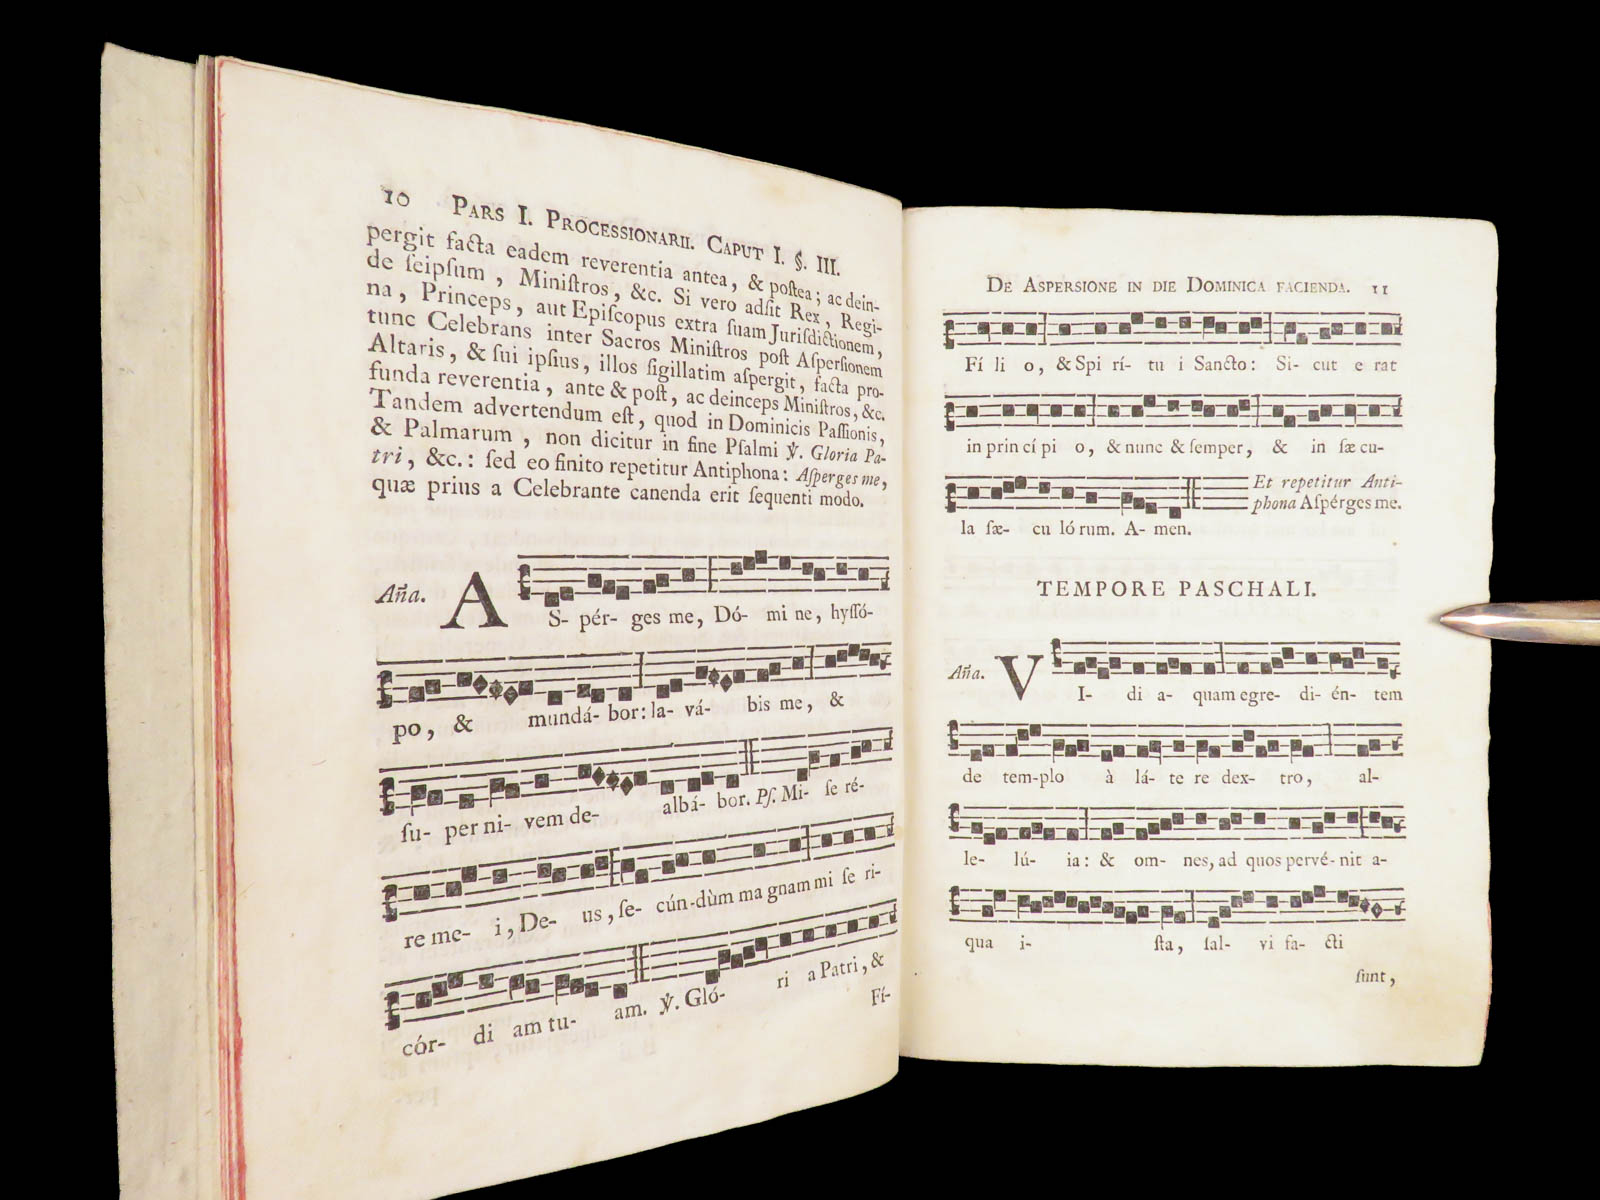 10 PARS I. PROCESSIONARII. CAPUT I. §. III.
pergit facta eadem reverentia antea, & poſtea; ac dein-
de ſeipſum, Miniſtros, &c. Si vero adſit Rex, Regi-
na, Princeps, aut Epiſcopus extra ſuam Juriſdictionem,
tunc Celebrans inter Sacros Miniſtros poſt Aſperſionem
Altaris, & ſui ipſius, illos ſigillatim aſpergit, facta pro-
funda reverentia, ante & poſt, ac deinceps Miniſtros, &c.
Tandem advertendum eſt, quod in Dominicis Paſſionis,
& Palmarum, non dicitur in fine Pſalmi ℣. Gloria Pa-
tri, &c.: ſed eo finito repetitur Antiphona: Aſperges me,
quæ prius a Celebrante canenda erit ſequenti modo.
Añа. AS- pér- ges me, Dó- mi ne, hyſſó-
po, & mundá- bor: la- vá- bis me, &
ſu- per ni- vem de- albá- bor. Pſ. Mi- ſe ré-
re me- i, De- us, ſe- cún-dùm ma gnam mi ſe ri-
cór- di am tu- am. ℣. Gló- ri a Patri, &
Fí-
DE ASPERSIONE IN DIE DOMINICA FACIENDA. 11
Fí li o, & Spi rí- tu i Sancto: Si- cut e rat
in prin cí pi o, & nunc & ſemper, & in ſæ cu-
Et repetitur Anti-
phona Aſpérges me.
la ſæ- cu ló rum. A- men.
TEMPORE PASCHALI.
Aña. VI- di a- quam egre- di- én- tem
de tem-plo à lá- te re dex- tro, al-
le- lú- ia: & om- nes, ad quos pervé- nit a-
qua i- ſta, ſal- vi fa- cti
ſunt,